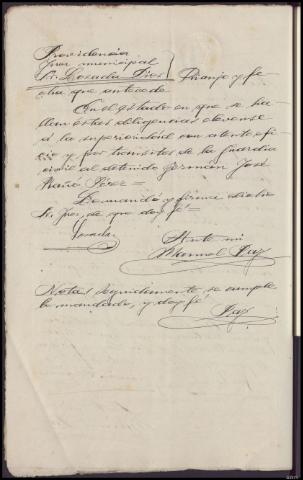 Providencia
Juez municipal
Sr. Losada Dios } Vianje y fe-
cha que antecede
En el estado en que se ha-
llen estas diligencias elevense
á la superioridad con atento ofi-
cio y por transitos de la Guardia
civil al detenido German José
Nuño Pérez =
Lo mandó y firma dicho
Sr. Juez, de que doy fé =
Losada
Ante mi
Manuel Paz
Nota: Seguidamente se cumple
lo mandado, y doy fé
Paz